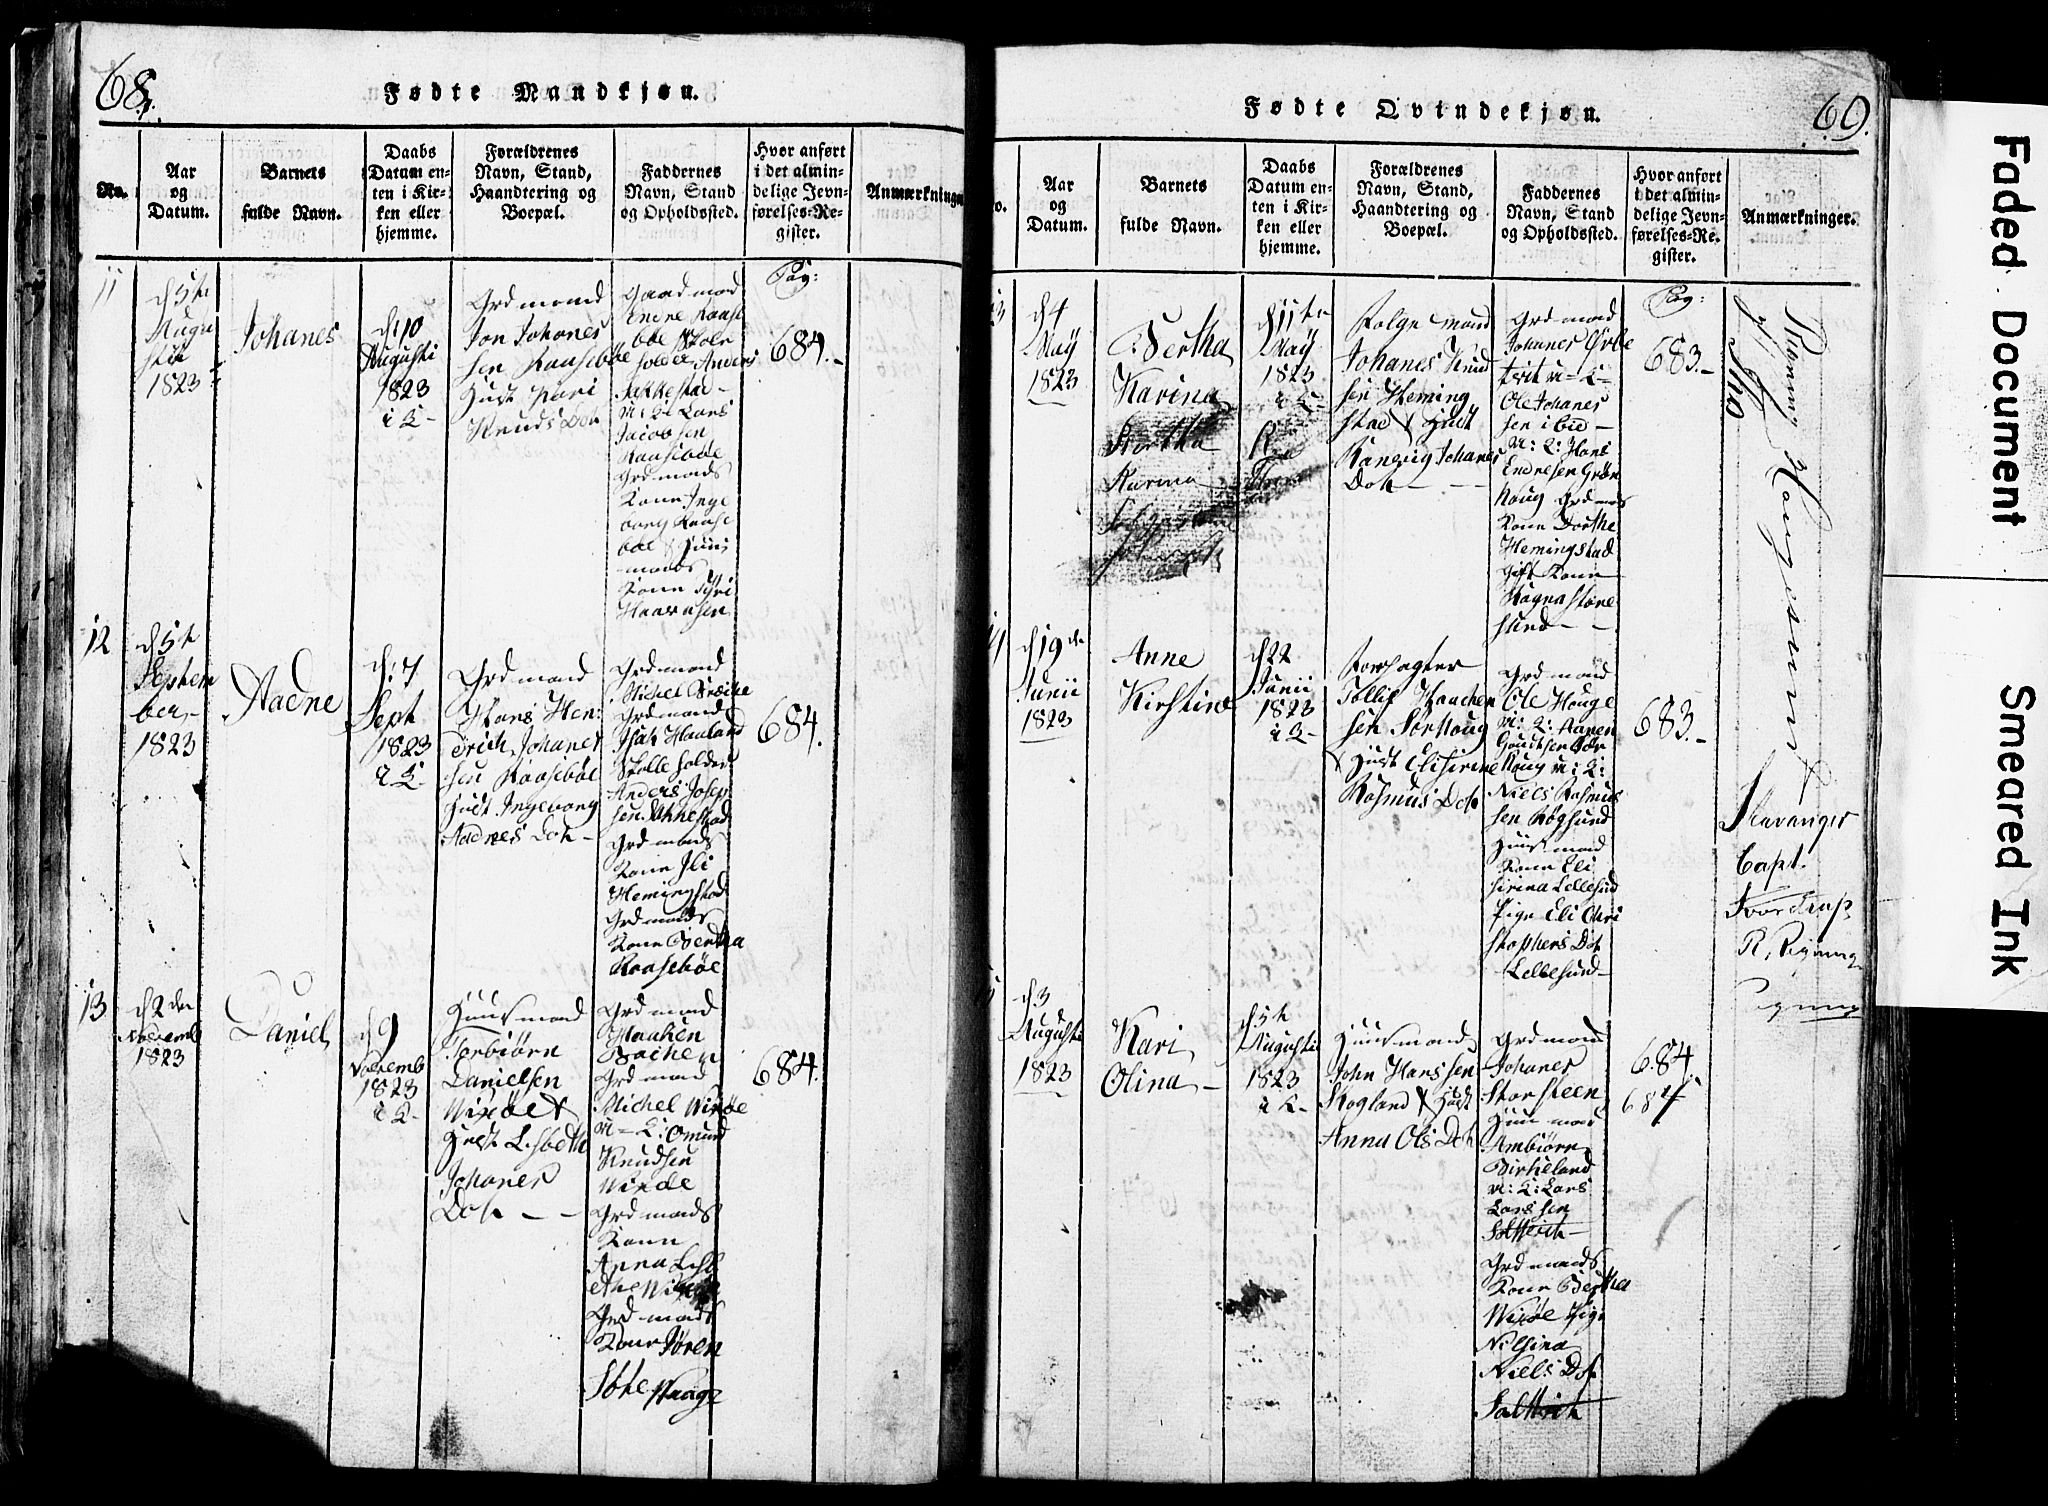 68.
Fødte Mandkjøn.
No.
Aar
og
Datum.
Barnets
fulde Navn.
Daabs
Datum en-
ten i Kir-
ken eller
hjemme.
Forældrenes
Navn, Stand,
Haandtering og
Boepæl.
Faddernes
Navn, Stand
og Opholdssted.
Hvor anført
i det almin-
delige Jevn-
førelses-Re-
gister.
Anmærkninger
11
d 5te
Augu
stii
1823
Johanes
d: 10
Augusti
1823
i K
Grdmand
Jon Johanes
sen Raasebøe
Hust Kari
Knuds Dotr
Gaardmand
Endre Raase
bøe Skole
holder Anders
Jakkestad
U: K: Lars
Jacobsen
Raasebøe
Grdmands
Kone Inge
borg Raase
bøe & Huus
mands
Kone Syri
Haavasen
Pag:
684.
12
d 5te
Septem
ber
1823
Aadne
d: 7
Sept
1823
i K
Grdmand
Hans Hen
drich Johanes
sen Raasebøe
Hust Ingeborg
Aadnes Dotr
Grdmand
Michel
Grdmand
Isak Hauland
Skolleholder
Anders Josep
sen Jakkestad
Grdmands
Kone Eli
Hemingstad
Grdmands
Kone Bertha
Raasebøe
684.
13
d 2den
Novemb
1823
Daniel
d 9
Novemb
1823
i K
Huusmand
Torbiørn
Danielsen
Wixøe &
Hust Lisbeth
Johanes
Dotr
Grdmand
Haaken
Backen
Grdmand
Michel Wixøe
U: K: Omund
Knudsen
Wixøe
Grdmands
Kone
Anna Lisb
ethe Wixøe
Grdmands
Kone Søren
Søtte Haage
684.
Fødte Qvindekjøn.
69.
No.
Aar
og
Datum.
Barnets
fulde Navn.
Daabs
Datum en-
ten i Kir-
ken eller
hjemme.
Forældrenes
Navn, Stand,
Haandtering og
Boepæl.
Faddernes
Navn, Stand
og Opholdssted.
Hvor anført
i det almin-
delige Jevn-
førelses-Re-
gister.
Anmærkninger.
13
d 4
May
1823
Bertha
Karina
Bertha
Karina
d 11te
May
1823
i K
Folge mand
Johanes Knud
sen Heming
stad & Hust
Ranevig Johanes
Dotr
Grdmand
Johanes Ørke
tvit U: K:
Ole Johanes
sen ibid
U: K: Hans
Endresen Grøn
Houg Grdmands
Kone Dorthe
Hemingstad
Gift Kone
Ragna Støre
sund
Pag:
683.
14
d 19de
Junii
1823
Anne
Kirstine
d 22
Junii
1823
i K
Forpagter
Tollif Haachen
sen Sørhoug
& Hust Eliserine
Rasmus Dotr
Grdmand
Ole Houge
U: K: Aanen
Gaudtsen Sør
Houg U: K:
Niels Rasmus
sen Røgsund
Huusmand
Kone Eli
sirina Lellesund
Pige Eli Chri
stophers Dotr
Lellesund
683.
15
d. 3
Augusti
1823
Kari
Olina
d 5te
Augustii
1823
i K
Huusmand
John Hanssen
Skogland & Hust
Anna Ols Dotr
Grdmand
Johanes
Storsteen
Huusmand
Ambiørn
Birkeland
U: K: Lars
Larssen
Saltterich
Grdmands
Kone Bertha
Wixøe Pige
Nilsina
Niels Dotr
Saltterich
684.
684
Haugesund
Stavanger
Capt.
Faded Document
Smeared Ink